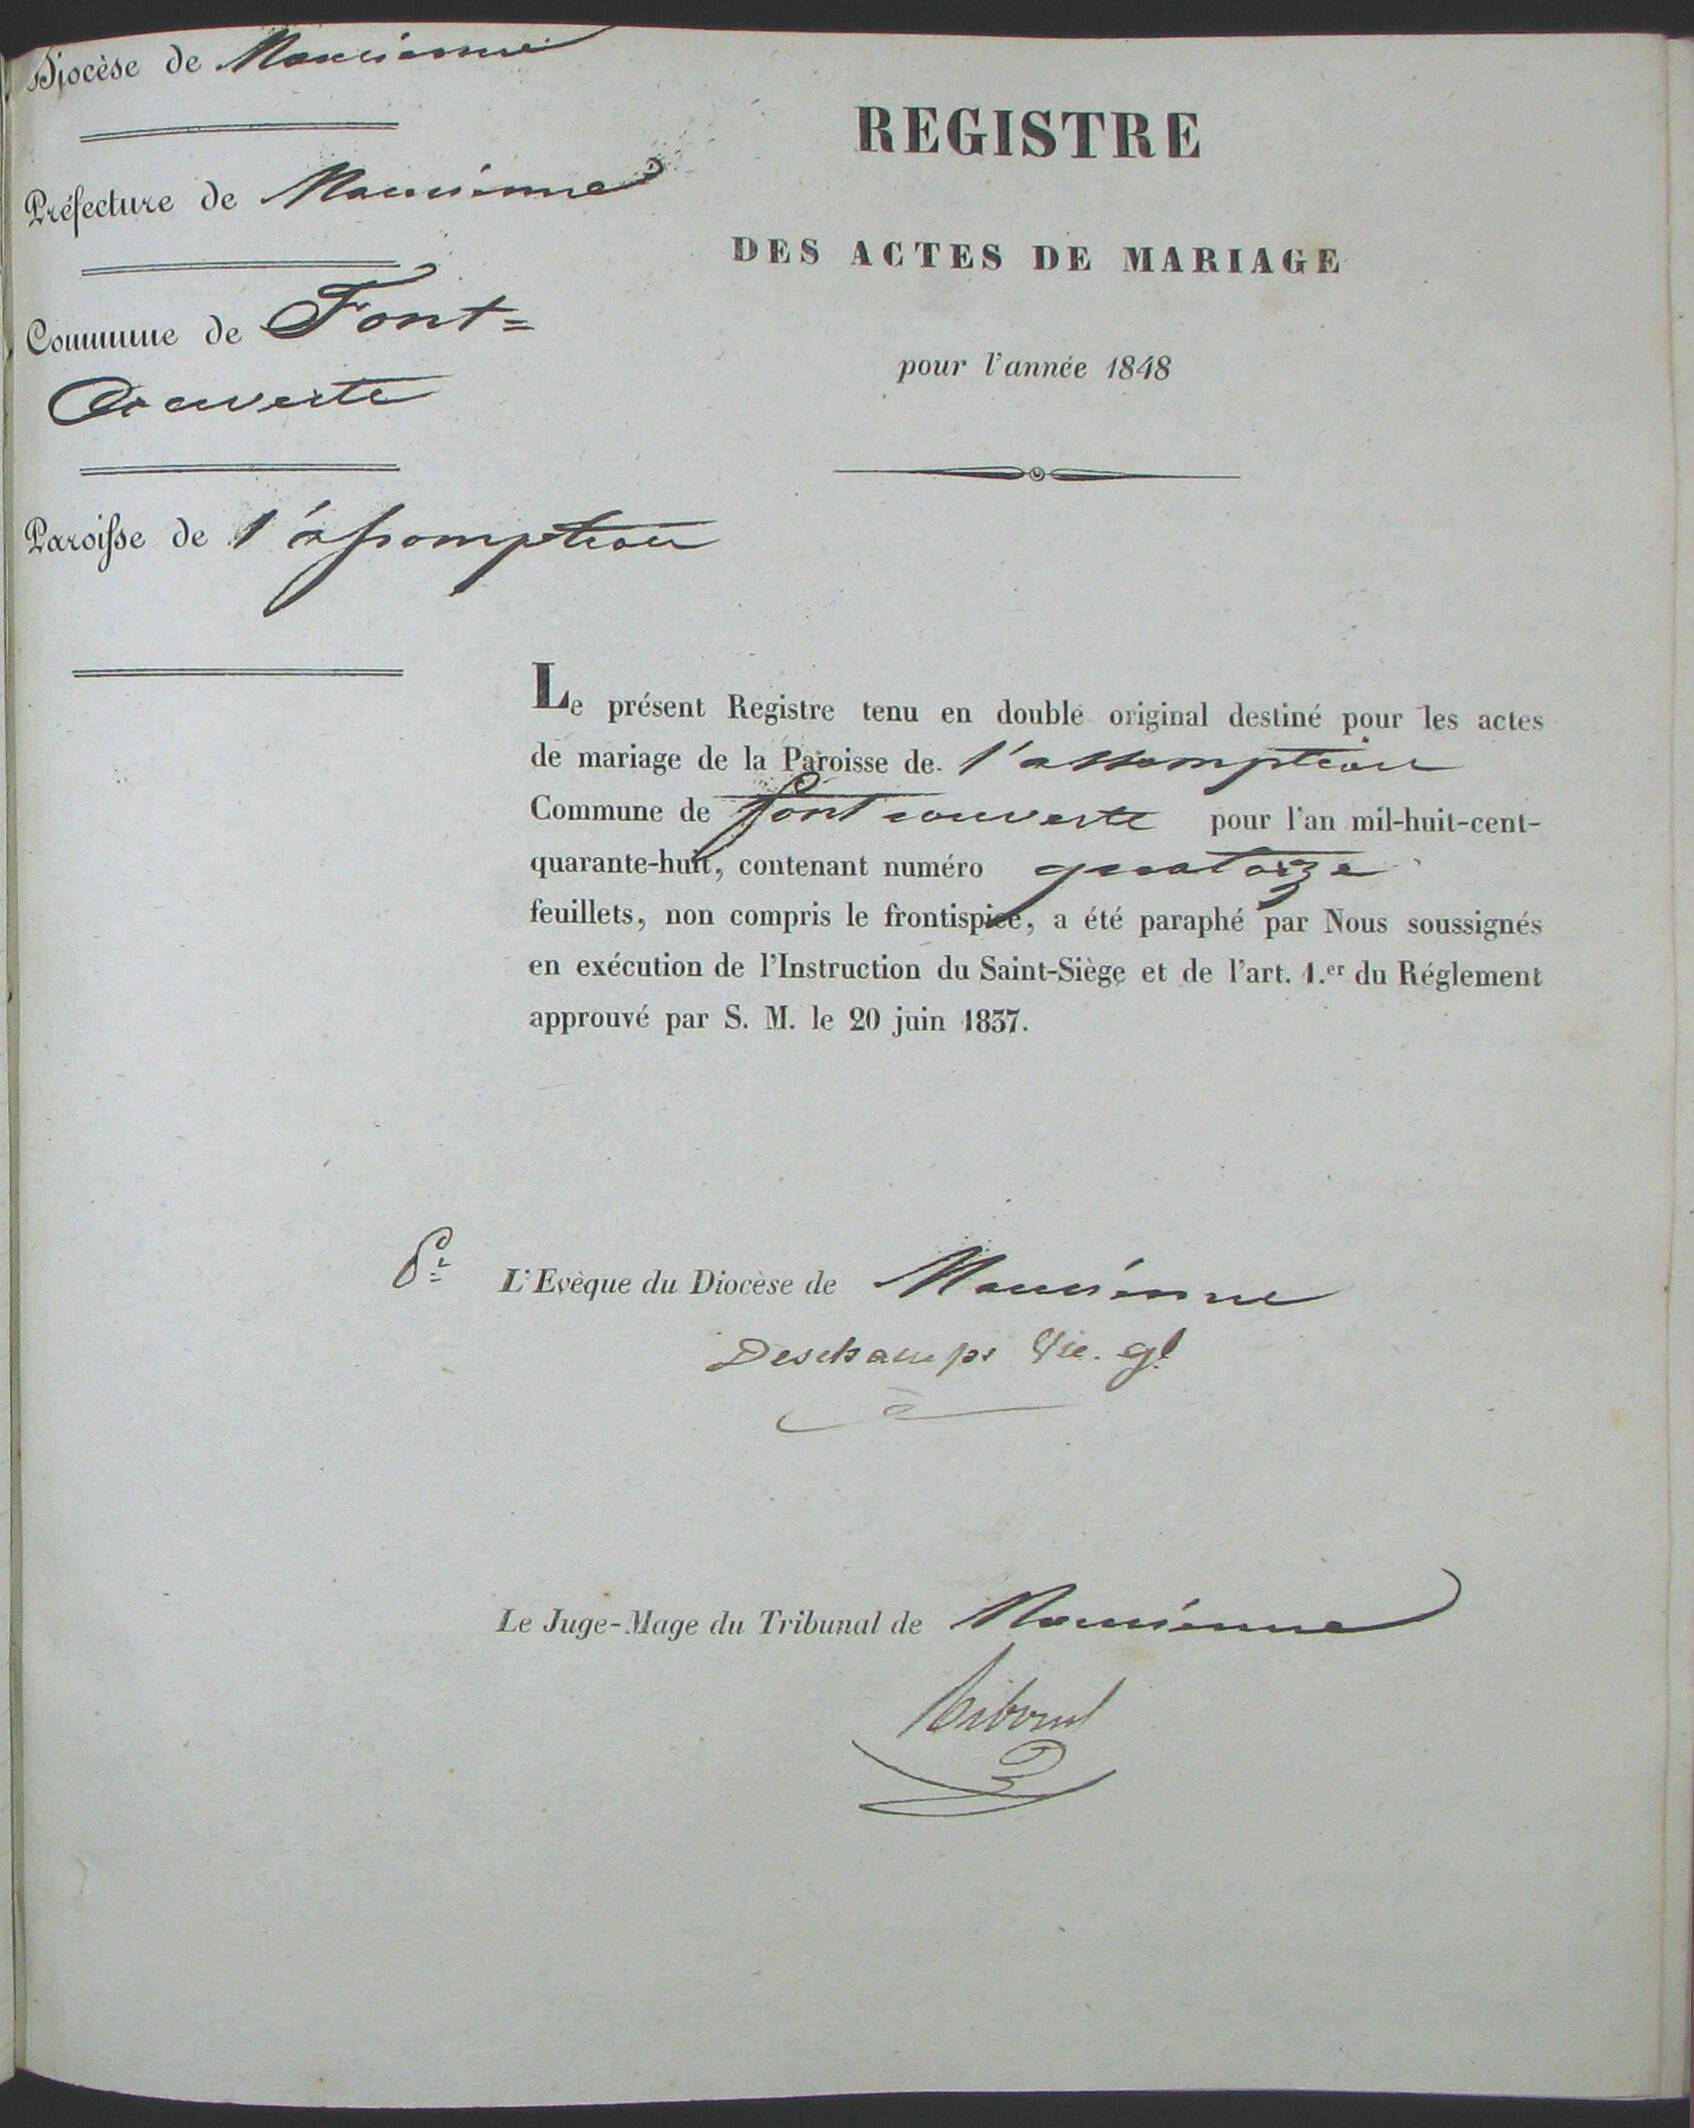 Diocèse de Maurienne
Préfecture de Maurienne
Commune de Font=
Couverte
Paroisse de l'assomption
REGISTRE
DES ACTES DE MARIAGE
pour l'année 1848
Le présent Registre tenu en double original destiné pour les actes
de mariage de la Paroisse de l'assomption
Commune de fontcouverte pour l'an mil-huit-cent-
quarante-huit, contenant numéro quatorze
feuillets, non compris le frontispice, a été paraphé par Nous soussignés
en exécution de l'Instruction du Saint-Siège et de l'art. 1.er du Réglement
approuvé par S. M. le 20 juin 1837.
Pr L'Evèque du Diocèse de Maurienne
Deschamps Vic. gl
Le Juge-Mage du Tribunal de Maurienne